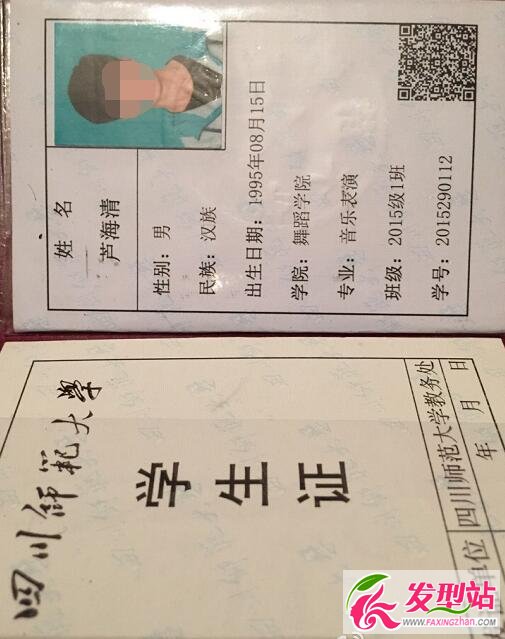 姓 名
芦海清
性别：男
民族：汉族
出生日期：1995年08月15日
学院：舞蹈学院
专业：音乐表演
班级：2015级1班
学号：2015290112
四川师范大学
学生证
单位 四川师范大学教务处
年 月 日
发型站
WWW.FAXINGZHAN.COM